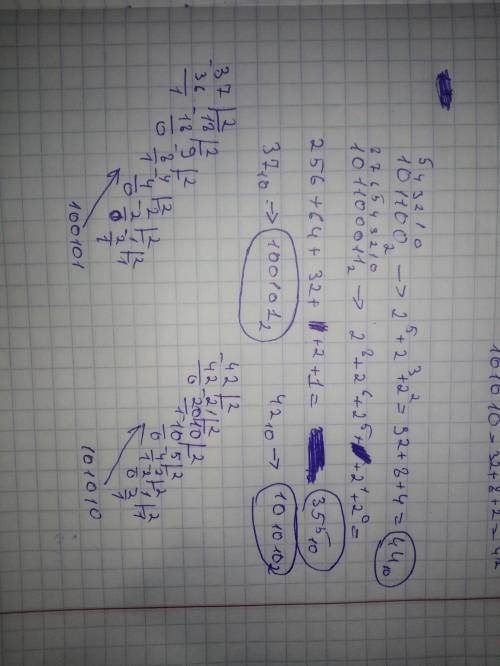 101010 = 32+8+2 = 42
5 4 3 2 1 0
101100₂ → 2⁵+2³+2² = 32+8+4 = 44₁₀
8 7 6 5 4 3 2 1 0
101100011₂ → 2⁸+2⁶+2⁵+ +2¹+2⁰=
256+64+32+ +2+1= 355₁₀
37₁₀ → 100101₂ 42₁₀ → 101010₂
-37|2 -42|2
36 -18|2 42 -21|2
1 18 -9|2 0 20 -10|2
0 8 -4|2 1 10 -5|2
1 4 -2|2 0 4 -2|2
0 2 1|2 1 2 1|2
0 0
100101 101010